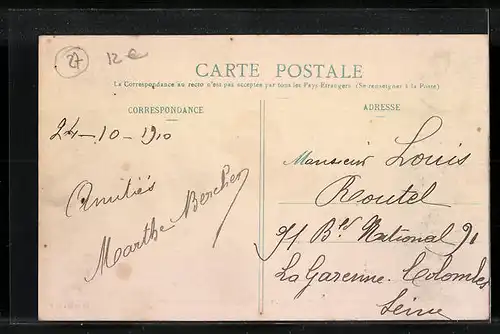 27
12 e
CARTE POSTALE
La Correspondance au recto n'est pas acceptée par tous les Pays Étrangers (Se renseigner à la Poste)
CORRESPONDANCE
ADRESSE
24-10-910
Amitiés
Marthe Bercher
Monsieur Louis
Routel
91 Bd National 91
La Garenne-Colombes
Seine